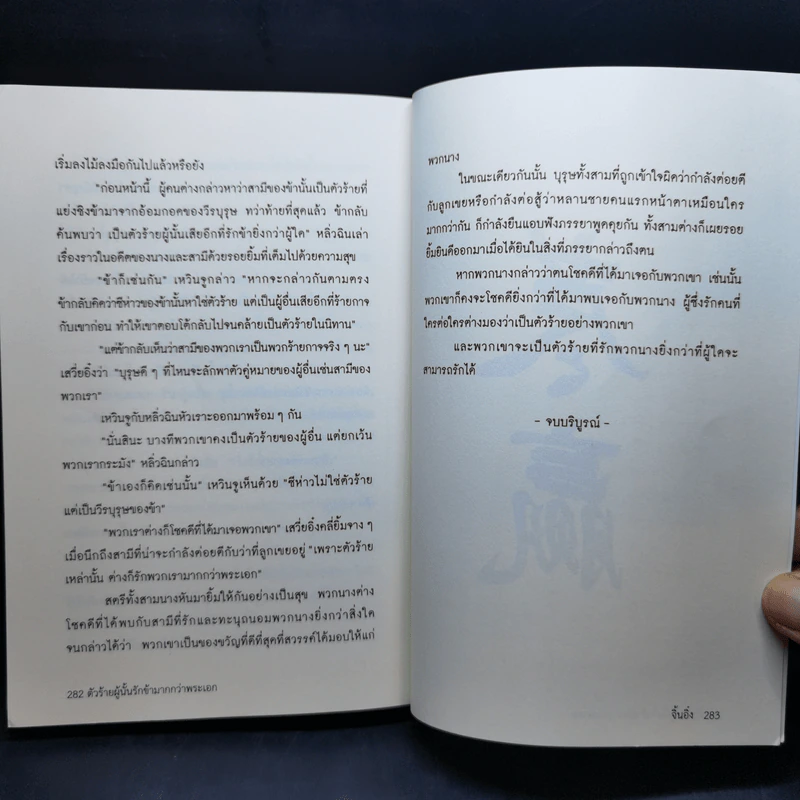 เริ่มลงไม้ลงมือกันไปแล้วหรือยัง
"ก่อนหน้านี้ ผู้คนต่างกล่าวหาว่าสามีของข้านั้นเป็นตัวร้ายที่
แย่งชิงข้ามาจากอ้อมกอดของวีรบุรุษ ทว่าท้ายที่สุดแล้ว ข้ากลับ
ค้นพบว่า เป็นตัวร้ายผู้นั้นเสียอีกที่รักข้ายิ่งกว่าผู้ใด" หลิ่วฉินเล่า
เรื่องราวในอดีตของนางและสามีด้วยรอยยิ้มที่เต็มไปด้วยความสุข
"ข้าก็เช่นกัน" เหวินจูกล่าว "หากจะกล่าวกันตามตรง
ข้ากลับคิดว่าซีห่าวของข้านั้นหาใช่ตัวร้าย แต่เป็นผู้อื่นเสียอีกที่ร้ายกาจ
กับเขาก่อน ทำให้เขาตอบโต้กลับไปจนคล้ายเป็นตัวร้ายในนิทาน"
"แต่ข้ากลับเห็นว่าสามีของพวกเราเป็นพวกร้ายกาจจริง ๆ นะ"
เสวี่ยอิ๋งว่า "บุรุษดี ๆ ที่ไหนจะลักพาตัวคู่หมายของผู้อื่นเช่นสามีของ
พวกเรา"
เหวินจูกับหลิ่วฉินหัวเราะออกมาพร้อม ๆ กัน
"นั่นสินะ บางทีพวกเขาคงเป็นตัวร้ายของผู้อื่น แต่ยกเว้น
พวกเรากระมัง" หลิ่วฉินกล่าว
"ข้าเองก็คิดเช่นนั้น" เหวินจูเห็นด้วย "ซีห่าวไม่ใช่ตัวร้าย
แต่เป็นวีรบุรุษของข้า"
"พวกเราต่างก็โชคดีที่ได้มาเจอพวกเขา" เสวี่ยอิ๋งคลี่ยิ้มจาง ๆ
เมื่อนึกถึงสามีที่น่าจะกำลังต่อยตีกับว่าที่ลูกเขยอยู่ "เพราะตัวร้าย
เหล่านั้น ต่างก็รักพวกเรามากกว่าพระเอก"
สตรีทั้งสามนางหันมายิ้มให้กันอย่างเป็นสุข พวกนางต่าง
โชคดีที่ได้พบกับสามีที่รักและทะนุถนอมพวกนางยิ่งกว่าสิ่งใด
จนกล่าวได้ว่า พวกเขาเป็นของขวัญที่ดีที่สุดที่สวรรค์ได้มอบให้แก่
282 ตัวร้ายผู้นั้นรักข้ามากกว่าพระเอก
พวกนาง
ในขณะเดียวกันนั้น บุรุษทั้งสามที่ถูกเข้าใจผิดว่ากำลังต่อยตี
กับลูกเขยหรือกำลังต่อสู้ว่าหลานชายคนแรกหน้าตาเหมือนใคร
มากกว่ากัน ก็กำลังยืนแอบฟังภรรยาพูดคุยกัน ทั้งสามต่างก็เผยรอย
ยิ้มยินดีออกมาเมื่อได้ยินในสิ่งที่ภรรยากล่าวถึงตน
หากพวกนางกล่าวว่าตนโชคดีที่ได้มาเจอกับพวกเขา เช่นนั้น
พวกเขาก็คงจะโชคดียิ่งกว่าที่ได้มาพบเจอกับพวกนาง ผู้ซึ่งรักคนที่
ใครต่อใครต่างมองว่าเป็นตัวร้ายอย่างพวกเขา
และพวกเขาจะเป็นตัวร้ายที่รักพวกนางยิ่งกว่าที่ผู้ใดจะ
สามารถรักได้
- จบบริบูรณ์ -
จิ้นอิ๋ง 283